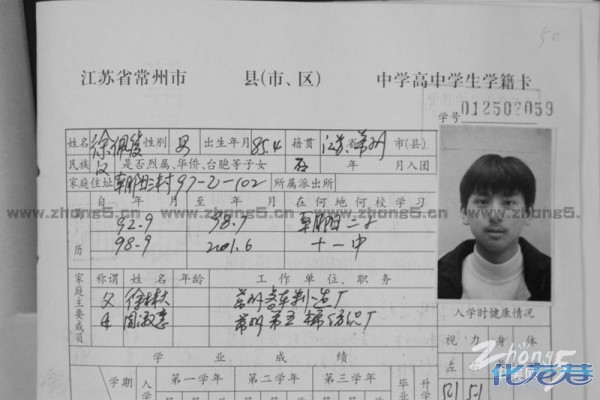 50
江苏省常州市 县(市、区) 中学高中学生学籍卡
学号 012502059
姓名 徐佩 性别 男 出生年月 85.4 籍贯 江苏省常州市(县)
民族 汉 是否烈属、华侨、台胞等子女 否 年 月入团
家庭住址 朝阳三村97-乙-102 所属派出所
自 年 月至 年 月 在何地何校学习
92.9 98.7 朝阳二小
历 98.9 2001.6 十一中
www.zhong5.cn www.zhong5.cn www.zhong5.
家庭主要成员 称谓 姓名 年龄 工作单位、职务
父 徐 常州客车制造厂
母 周淑 常州第五棉纺织厂
入学时健康情况
视力 身体
学业成绩
左
学期 入学 第一学年 第二学年 第三学年 毕业 升学
5.1 5.1
Zhong5
化龙巷